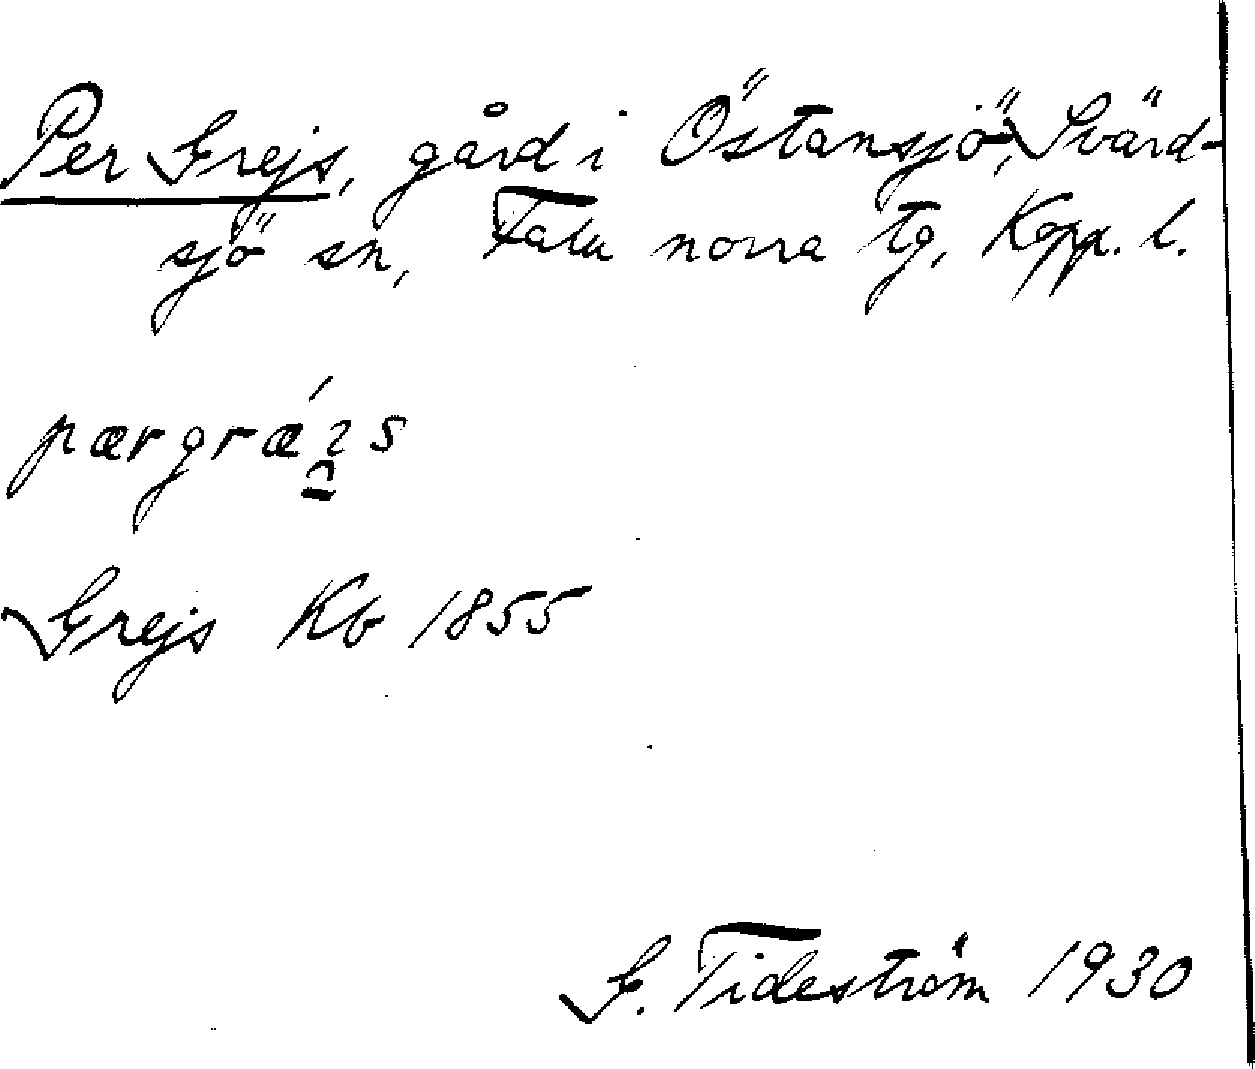 Per Grejs, gård i Östansjö, Svärd-
sjö sn, Falu norra tg, Kopp. l.
Grejs Kb 1855
G. Tideström 1930